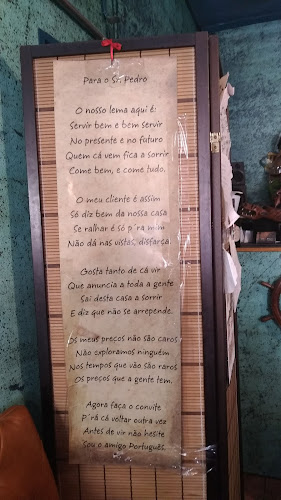 Para o Sr. Pedro
O nosso lema aqui é:
Servir bem e bem servir
No presente e no futuro
Quem cá vem fica a sorrir
Come bem, e come tudo.
O meu cliente é assim
Só diz bem da nossa casa
Se ralhar é só p´ra mim
Não dá nas vistas, disfarça.
Gosta tanto de cá vir
Que anuncia a toda a gente
Sai desta casa a sorrir
E diz que não se arrepende.
Os meus preços não são caros
Não exploramos ninguém
Nos tempos que vão são raros
Os preços que a gente tem.
Agora faça o convite
P´rá cá voltar outra vez
Antes de vir não hesite
Sou o amigo Português.